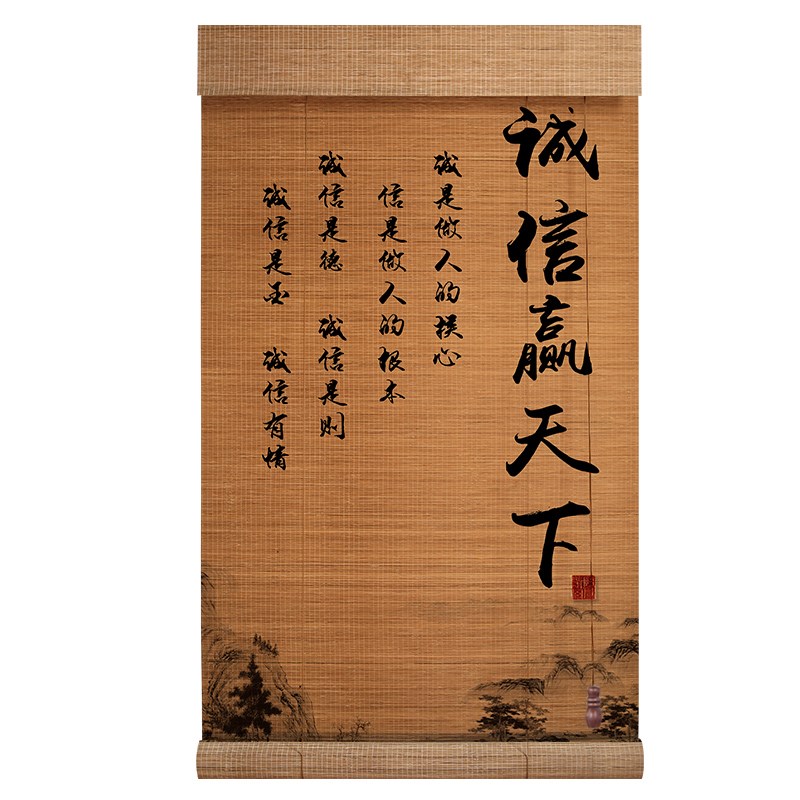 诚信赢天下
诚是做人的核心
信是做人的根本
诚信是德 诚信是则
诚信是 诚信有情